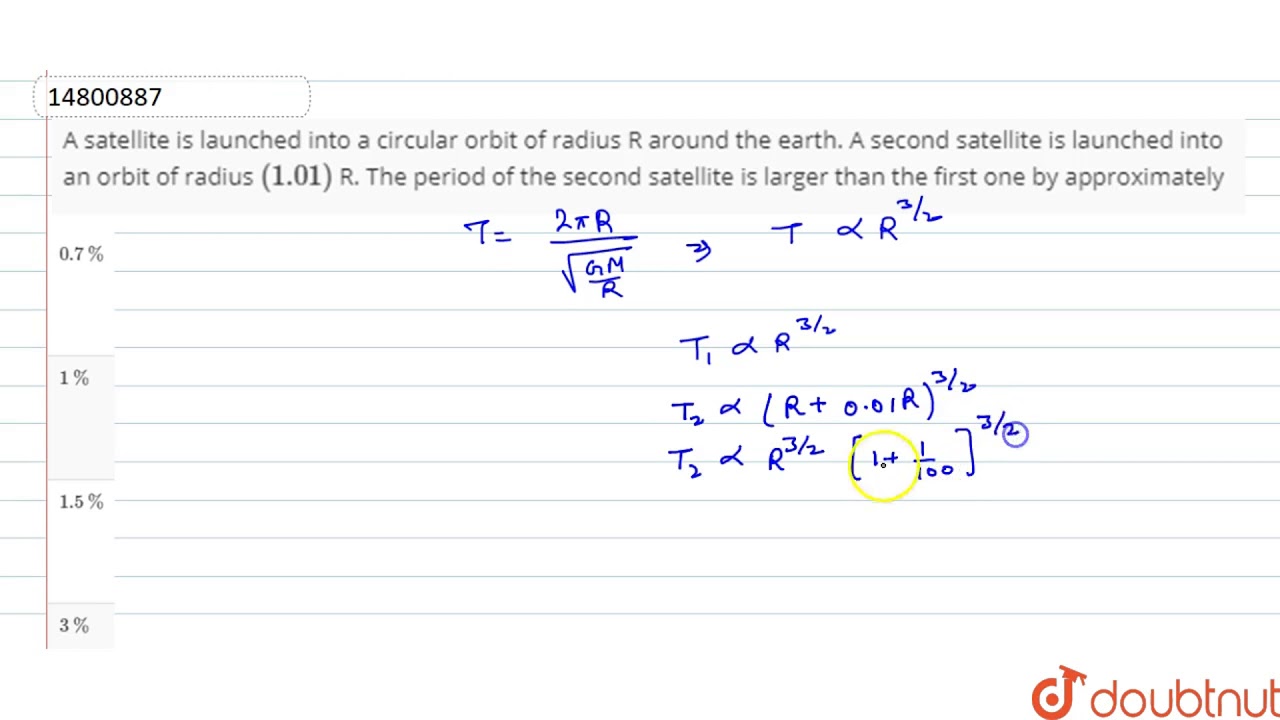 14800887
A satellite is launched into a circular orbit of radius R around the earth. A second satellite is launched into
an orbit of radius (1.01) R. The period of the second satellite is larger than the first one by approximately
T = 2πR / √(GM/R) ⇒ T ∝ R^3/2
0.7 %
T₁ ∝ R^3/2
1 %
T₂ ∝ (R + 0.01R)^3/2
T₂ ∝ R^3/2 [1 + 1/100]^3/2
1.5 %
3 %
doubtnut